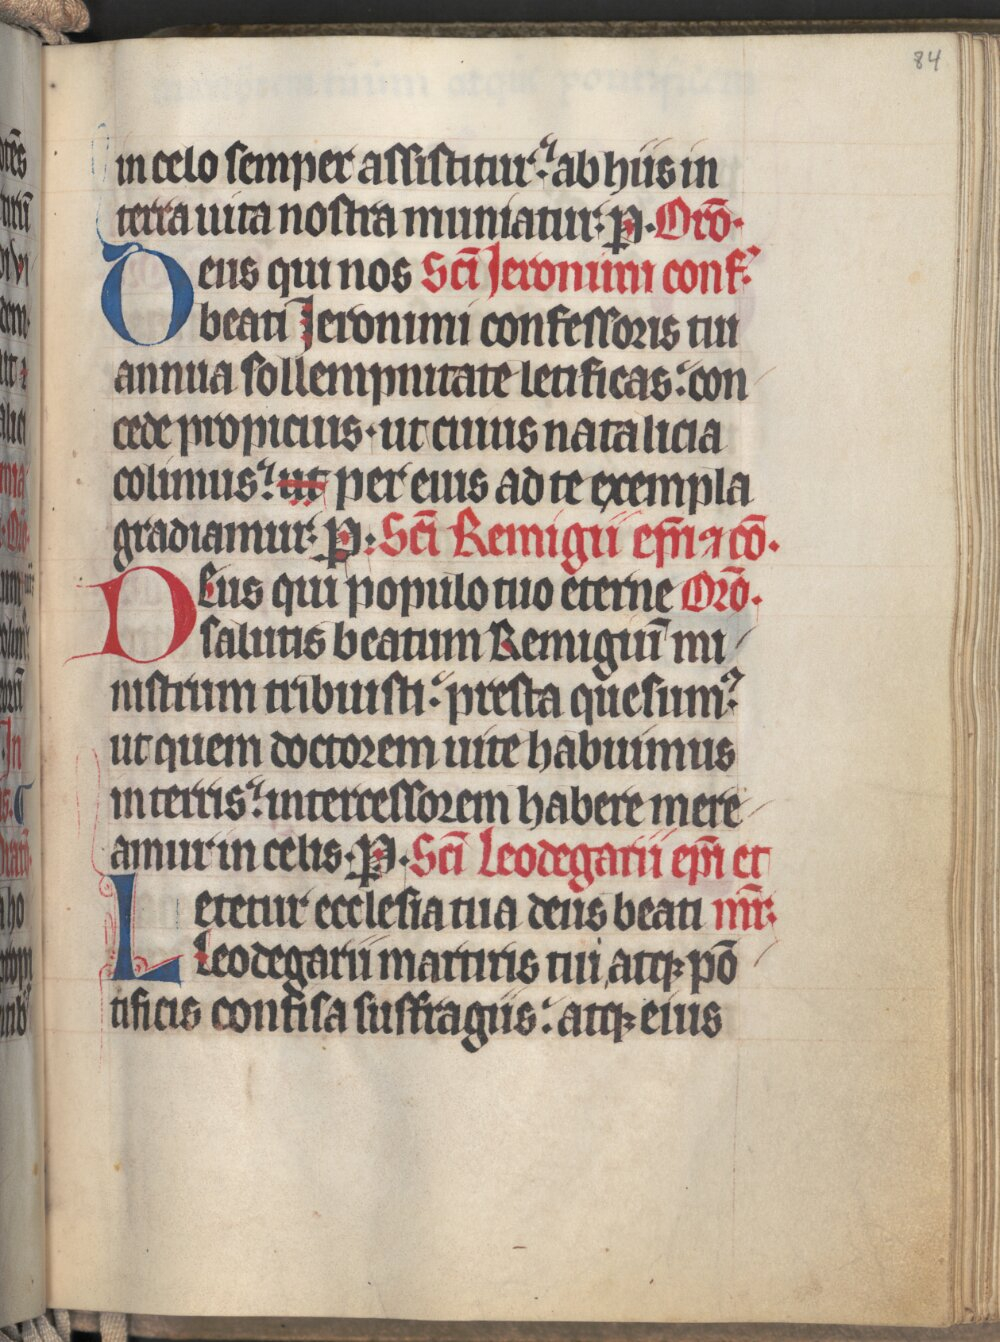 84
in celo semper assistitur: ab hiis in
terra uita nostra muniatur: p. Orō.
Deus qui nos Scī Jeronimi conf.
beati Jeronimi confessoris tui
annua sollempnitate letificas: con
cede propicius. ut cuius natalicia
colimus: ut per eius ad te exempla
gradiamur: p. Scī Remigii ep̄i ⁊ cō.
Deus qui populo tuo eterne Orō.
salutis beatum Remigiū mi
nistrum tribuisti: presta quesumꝰ
ut quem doctorem uite habuimus
in terris: intercessorem habere mere
amur in celis. p. Scī Leodegarii ep̄i et
Letetur ecclesia tua deus beati mr̄.
Leodegarii martiris tui, atqꝫ pō
tificis confisa suffragiis: atqꝫ eius